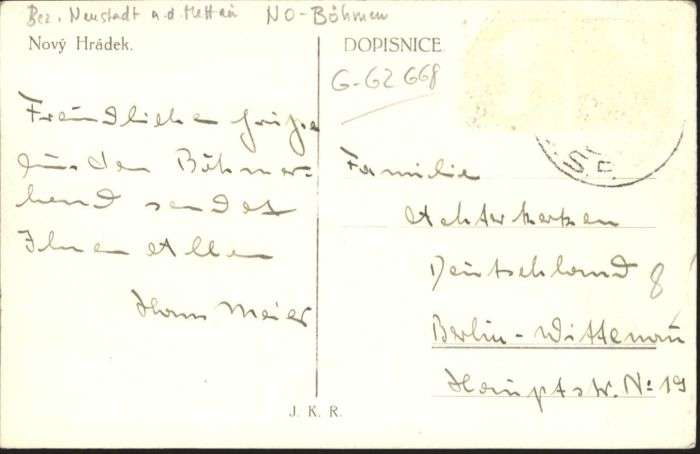 Bez. Neustadt a.d. Mettau NO-Böhmen
Nový Hrádek.
DOPISNICE
G-62 668
Freundliche Grüße
aus dem Böhmer-
land sendet
Ihnen Allen
Hans Meier
Familie
Achterkerken
Deutschland
Berlin-Wittenau
Hauptstr. No 19
J. K. R.